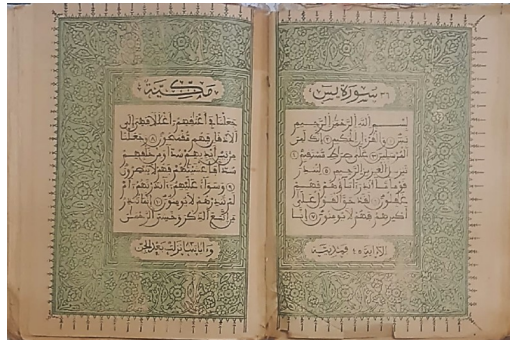 ٣٦ سورة يس
بسم الله الرحمن الرحيم
يس والقرءان الحكيم إنك لمن
المرسلين على صراط مستقيم
تنزيل العزيز الرحيم لتنذر
قوما ما أنذر ءاباؤهم فهم
غفلون لقد حق القول على
أكثرهم فهم لا يومنون إنا
إلا آية فمدنية
مكية
جعلنا في أعنقهم أغللا فهي إلى
الاذقان فهم مقمحون وجعلنا
من بين أيديهم سدا ومن خلفهم
سدا فأغشينهم فهم لا يبصرون
وسواء عليهم ءانذرتهم أم
لم تنذرهم لا يومنون إنما تنذر
من اتبع الذكر وخشي الرحمن
وآياتها نزلت بعد الجن